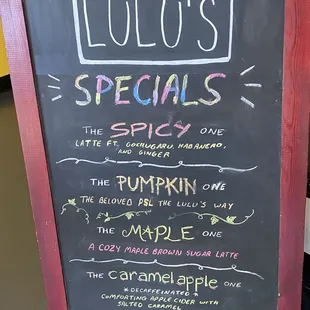 LULU'S
SPECIALS
THE SPICY ONE
LATTE FT. GOCHUGARU, HABANERO,
AND GINGER
THE PUMPKIN ONE
THE BELOVED PSL THE LULU'S WAY
THE MAPLE ONE
A COZY MAPLE BROWN SUGAR LATTE
THE caramel apple ONE
*DECAFFEINATED*
COMFORTING APPLE CIDER WITH
SALTED CARAMEL